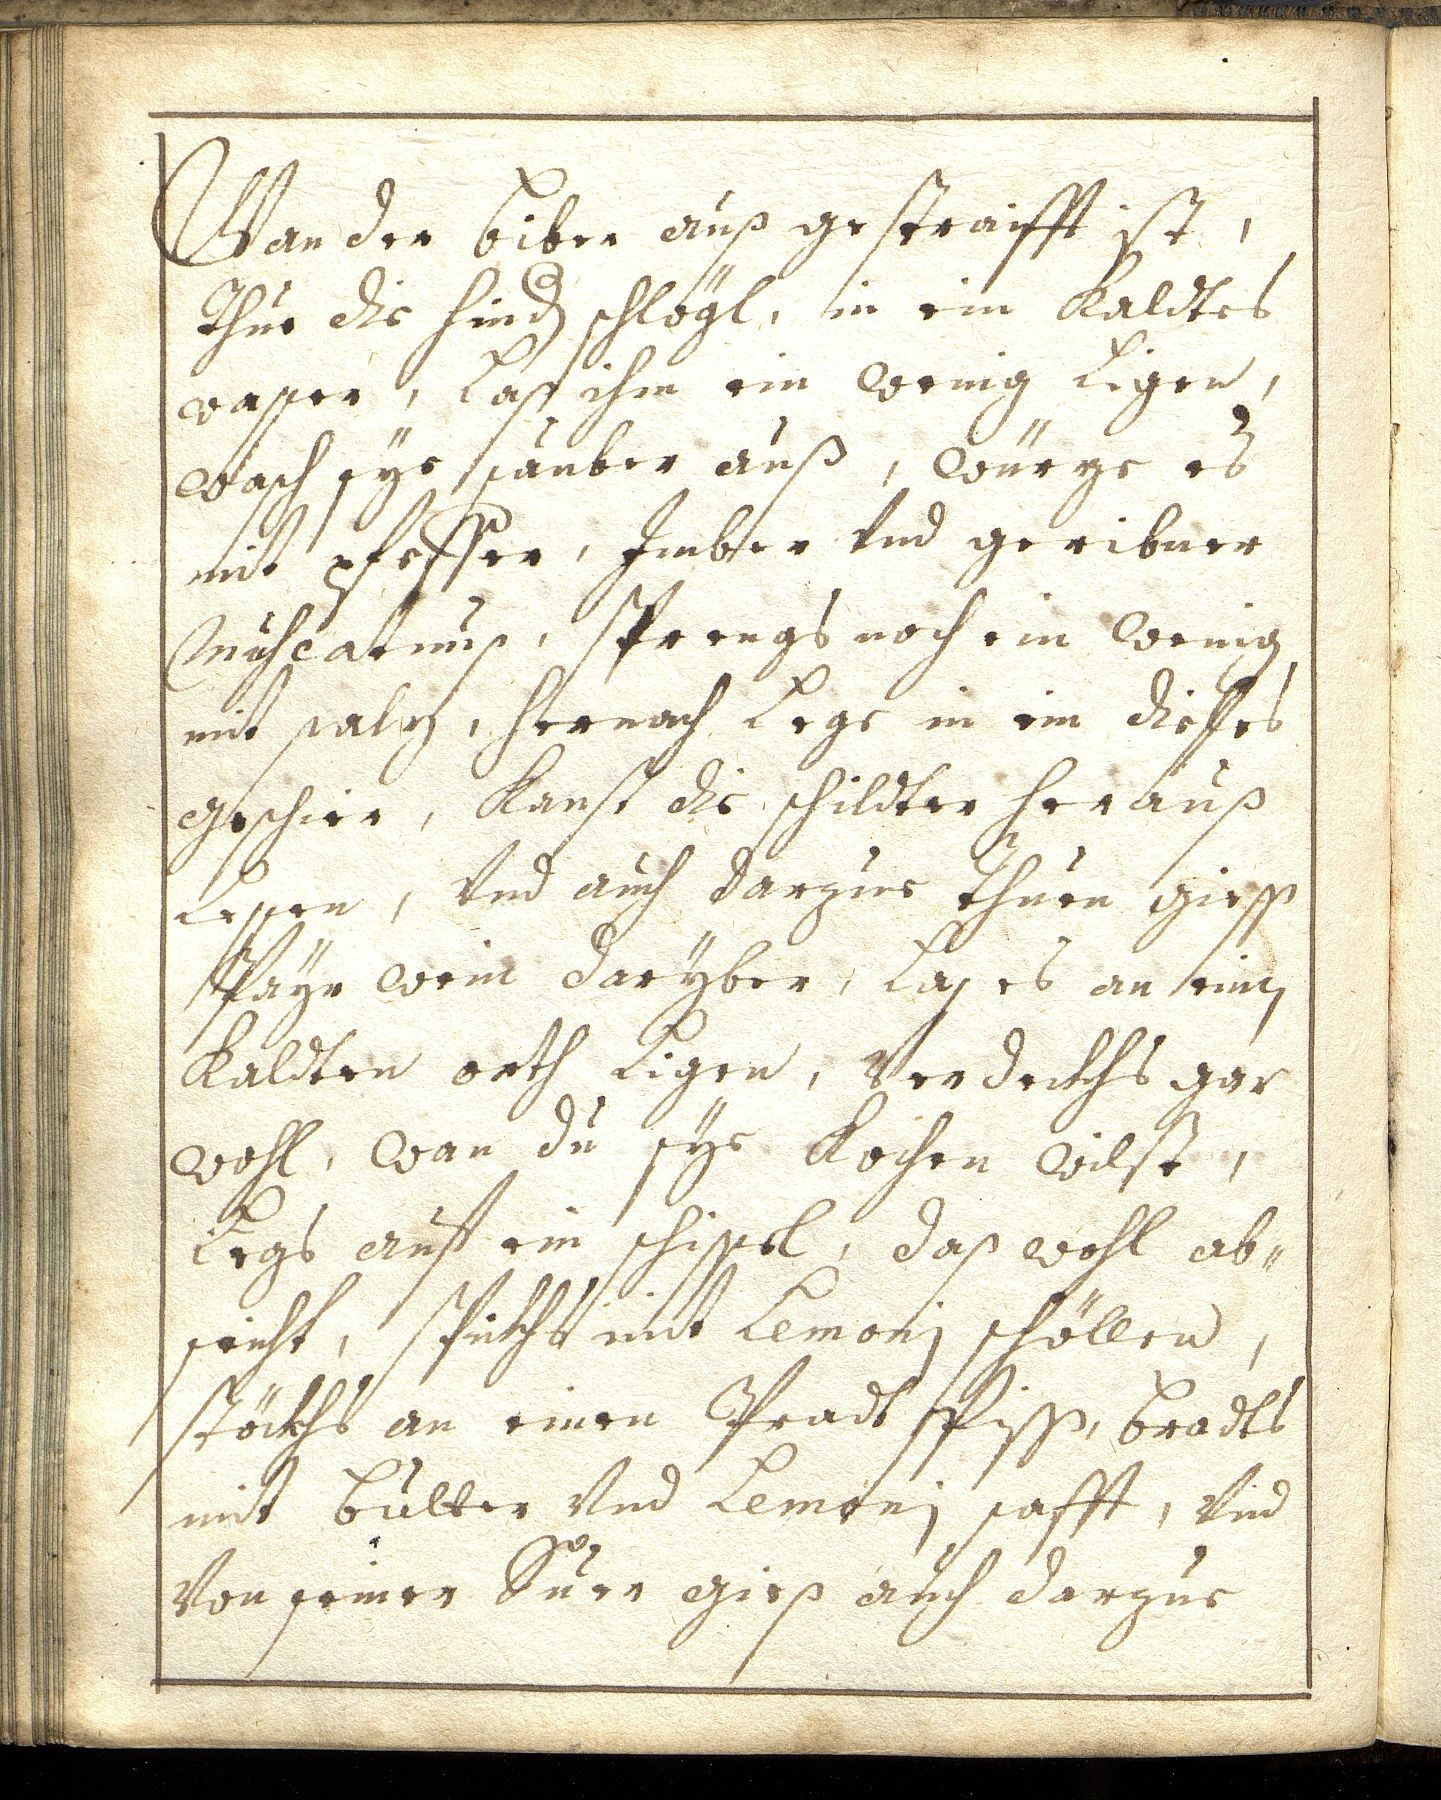 Wan der biber auß gestraifft ist,
Thue die hind schlögl, in ein Kaldtes
wasser, Laß ihm ein wenig Ligen,
wasch sye sauber auß, würze es
mit pfeffer, Imber Vnd geribner
Muscatnuß, Sprengs noch ein wenig
mit salz, hernach Legs in ein dieffes
geschier, Kanst die schildter herauß
Lessen, Vnd auch darzue Thuen gieß
Payr wein daryber, Laß es an einj
Kaldten orth Ligen, Verdeckhs gar
wohl, wan du sye Kochen wilst,
Legs auf ein schissel, daß wohl ab"
seicht, Spickhs mit Lemonj schöllen,
stöckhs an einen Pradt Spiß, bradts
mit butter Vnd Lemonj safft, Vnd
Von seiner Surr gieß auch darzue